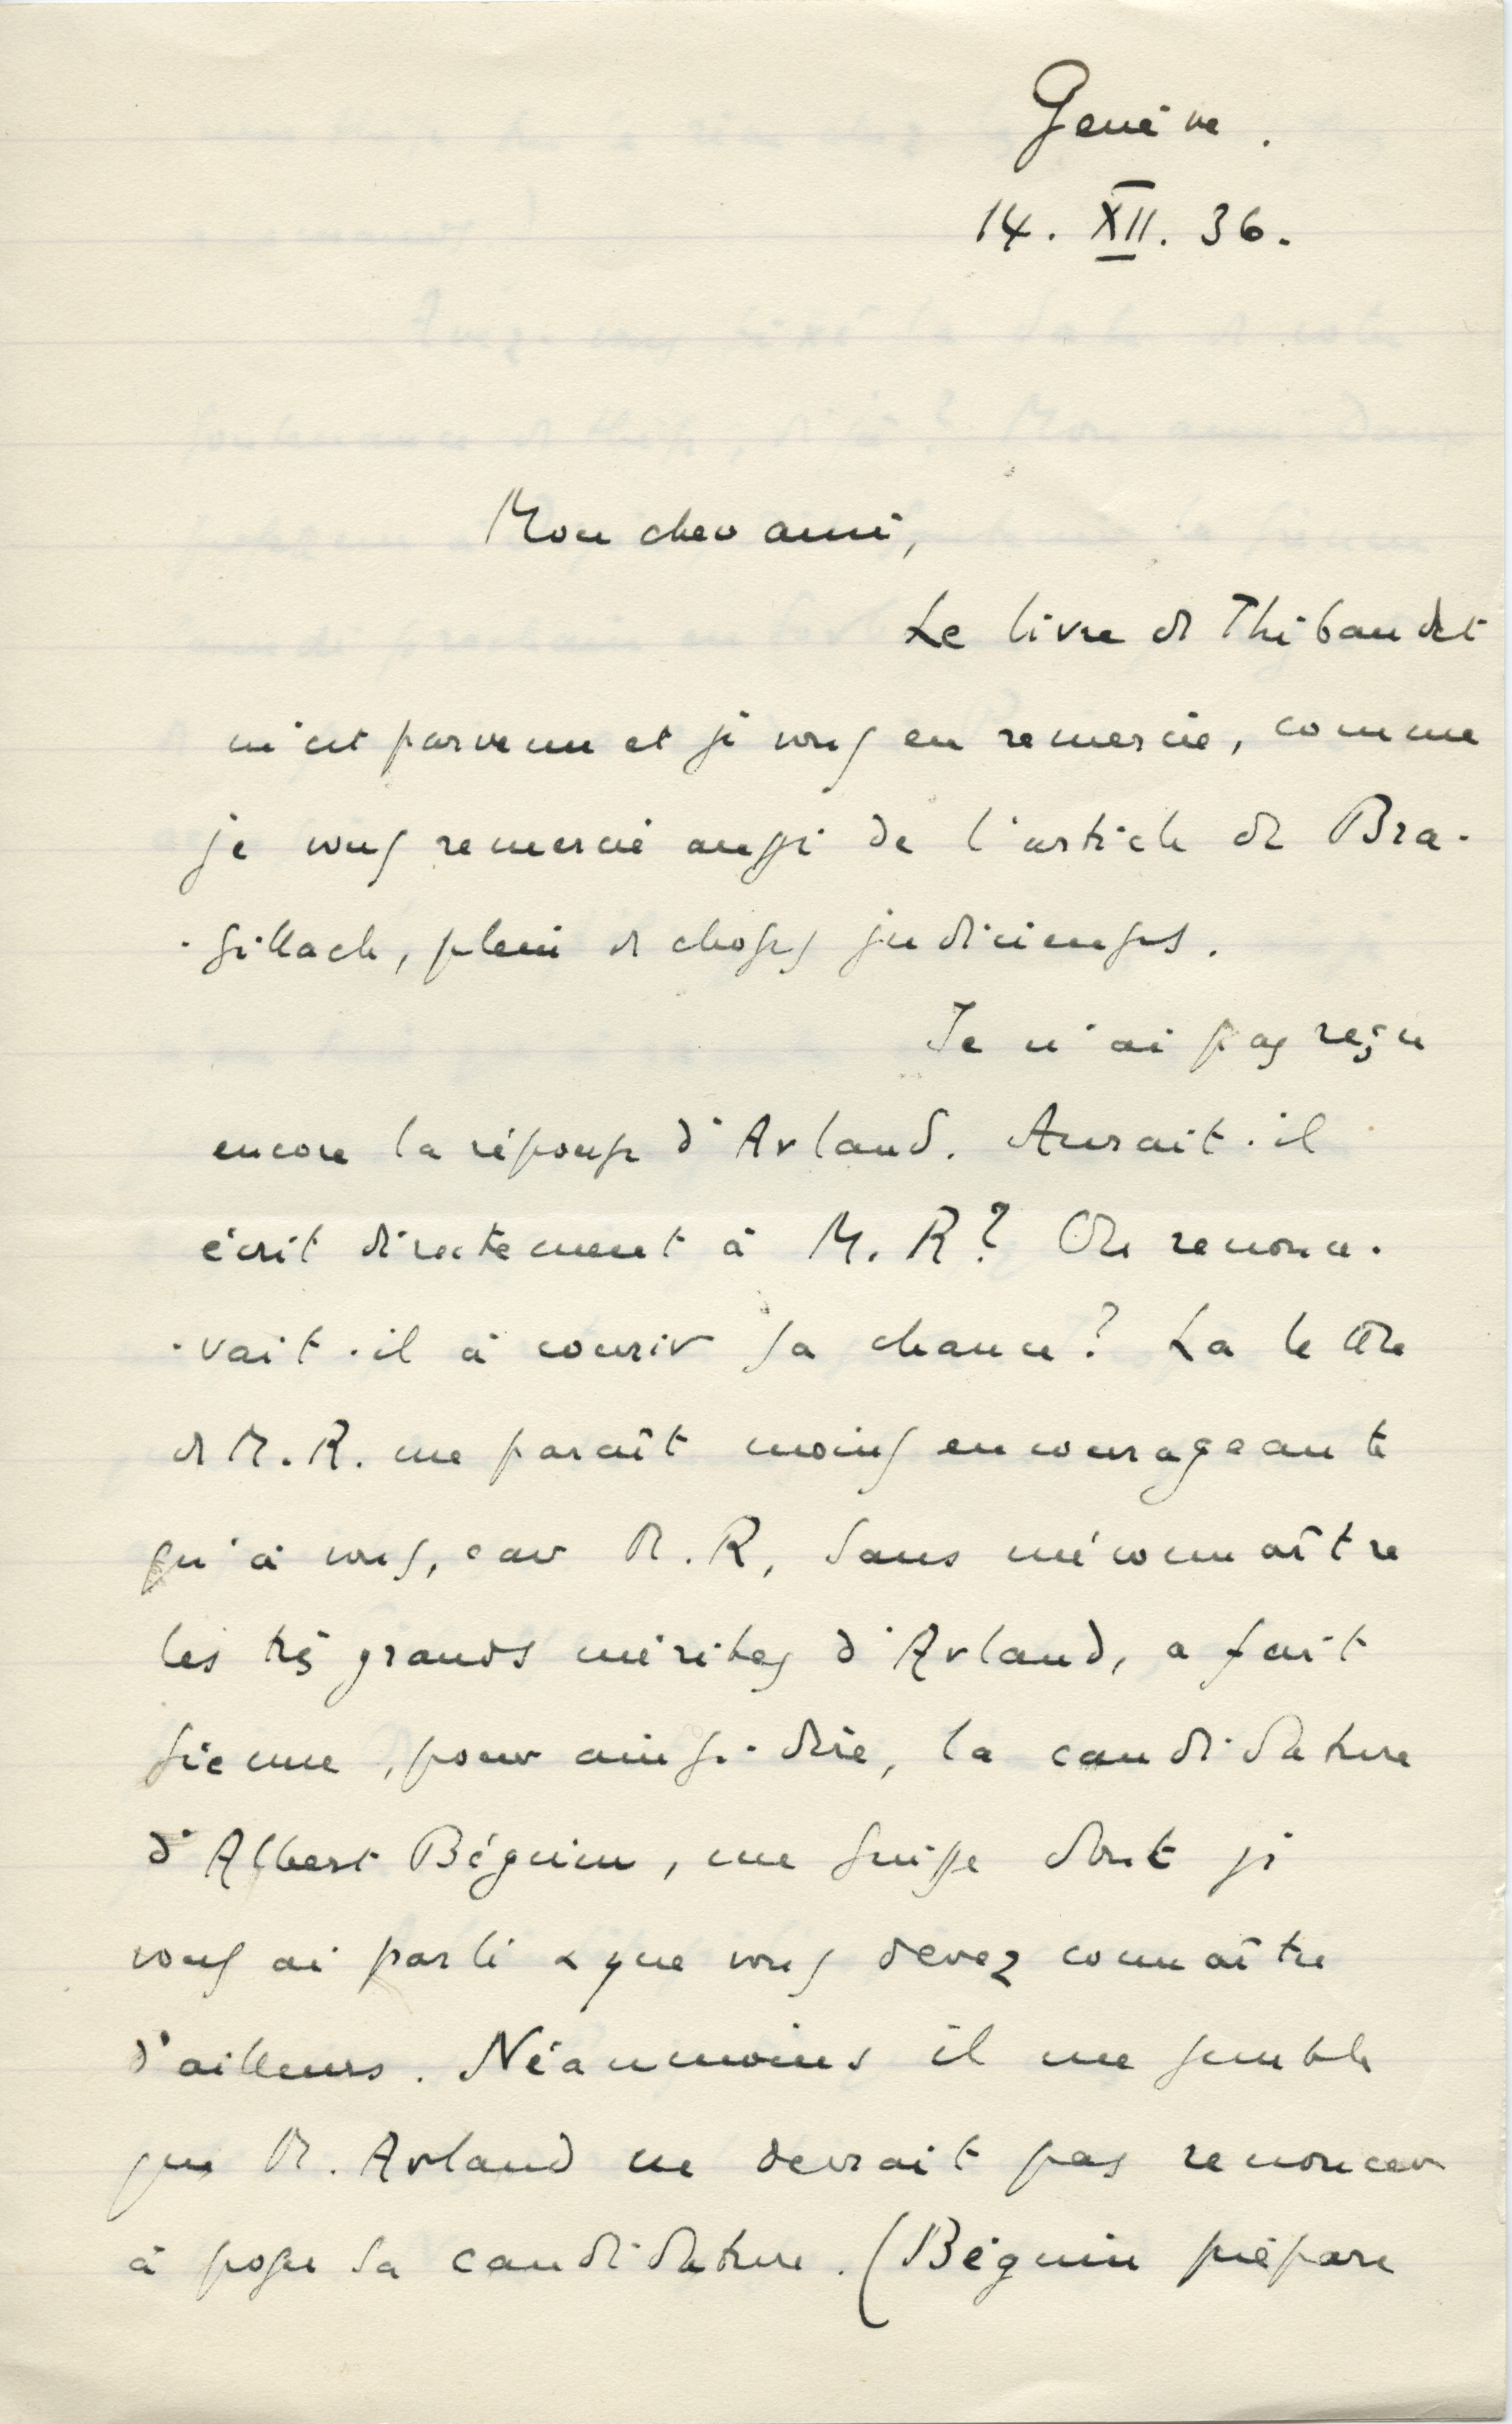 Genève.
14. XII. 36.
Mon cher ami,
Le livre de Thibaudet
m'est parvenu et je vous en remercie, comme
je vous remercie aussi de l'article de Bra-
-sillach, plein de choses judicieuses.
Je n'ai pas reçu
encore la réponse d'Arland. Aurait-il
écrit directement à M. R? Ou renonce-
-rait-il à courir sa chance? La lettre
de M. R. me paraît moins encourageante
qu'à vous, car M. R, sans méconnaître
les très grands mérites d'Arland, a fait
sienne, pour ainsi-dire, la candidature
d'Albert Béguin, un suisse dont je
vous ai parlé & que vous devez connaître
d'ailleurs. Néanmoins il me semble
que M. Arland ne devrait pas renoncer
à poser sa candidature. (Béguin prépare